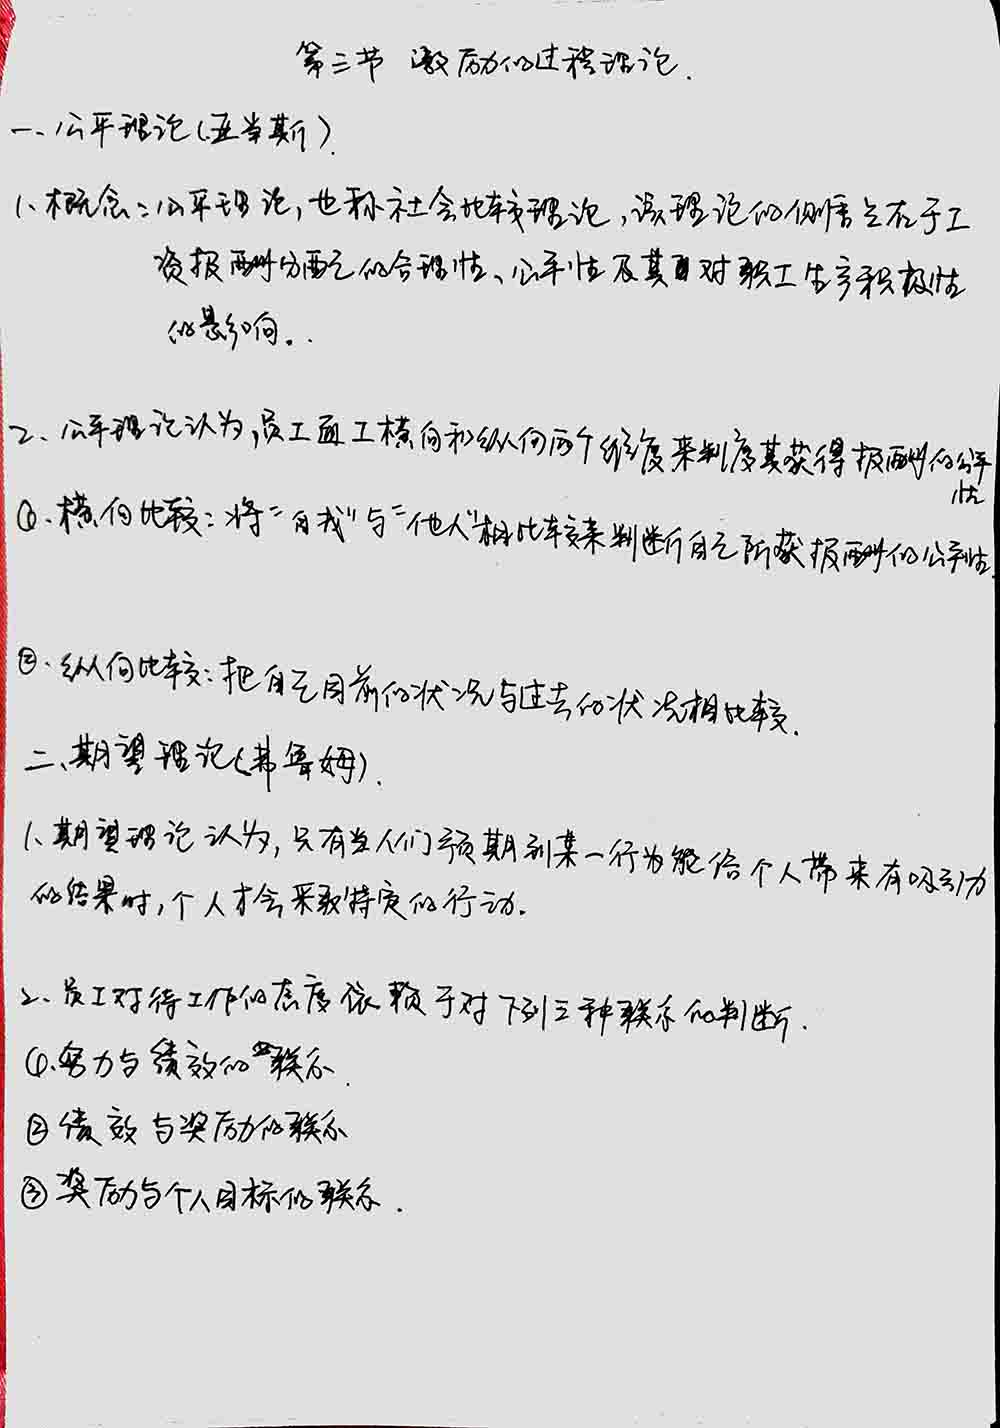 第三节 激励的过程理论.
一、公平理论(亚当斯).
1、概念：公平理论，也称社会比较理论，该理论的侧重点在于工
资报酬分配的合理性、公平性及其对职工生产积极性
的影响。.
2、公平理论认为，员工通过横向和纵向两个维度来判度其获得报酬的公平
性
①.横向比较：将“自我”与“他人”相比较来判断自己所获报酬的公平性.
②.纵向比较：把自己目前的状况与过去的状况相比较.
二、期望理论(弗鲁姆).
1、期望理论认为，只有当人们预期到某一行为能给个人带来有吸引力
的结果时，个人才会采取特定的行动.
2、员工对待工作的态度依赖于对下列三种联系的判断.
①.努力与绩效的联系.
②绩效与奖励的联系
③奖励与个人目标的联系.